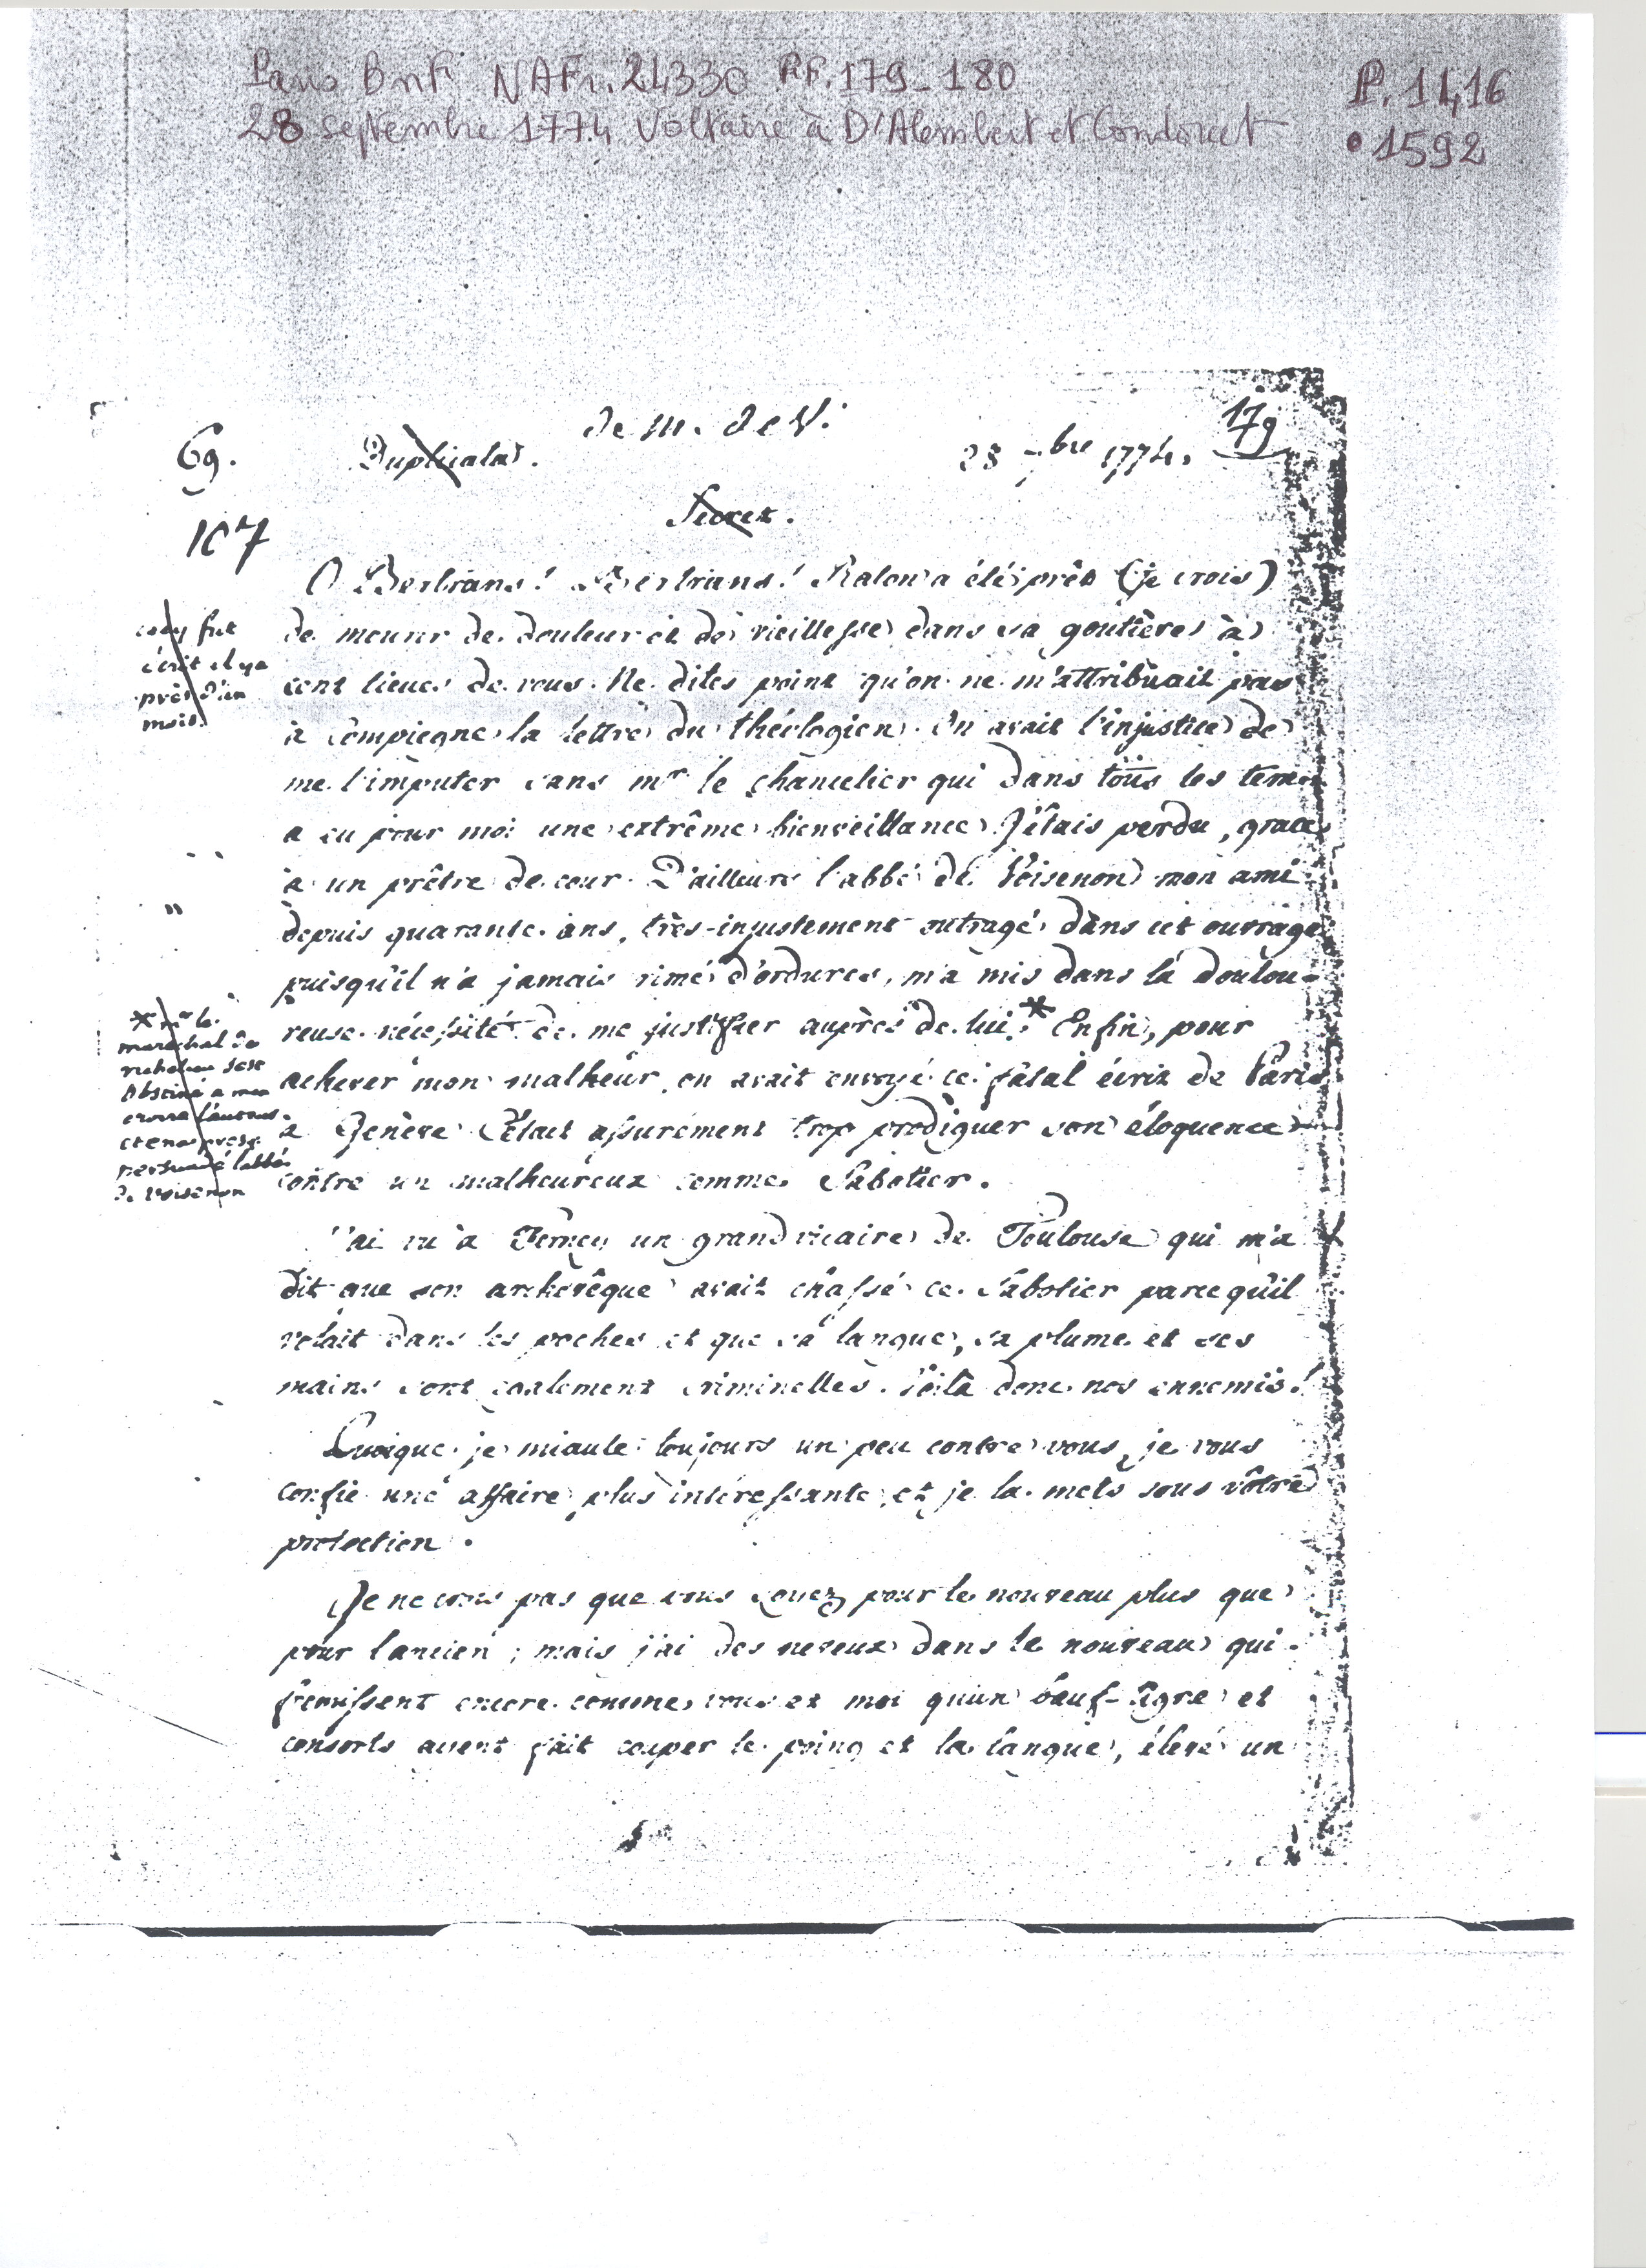 Paris BnF NAFr. 24330 ff. 179-180
28 septembre 1774 Voltaire à D'Alembert et Condorcet
P. 1416
1592
de m. de V.
179
69.
Duplicata.
28 7bre 1774.
Secret.
107
O Bertrans! Bertrans! Raton a été près (je crois)
de mourir de douleur et de vieillesse dans sa goutière à
cent lieues de vous. Ne dites point qu'on ne m'attribuait pas
à Compiegne la lettre du théologien. On avait l'injustice de
me l'imputer dans mr le chancelier qui dans tous les tems
a eu pour moi une extrême bienveillance. J'étais perdu, grace
à un prêtre de cour. D'ailleurs l'abbé de Voisenon mon ami
depuis quarante ans, très-injustement outragé dans cet ouvrage
puisqu'il n'a jamais rimé d'ordures, m'a mis dans la doulou-
reuse nécessité de me justifier auprès de lui.* Enfin, pour
achever mon malheur, on avait envoyé ce fatal écrit de Paris
à Genève. C'était assurément trop prodiguer son éloquence
contre un malheureux comme Sabotier.
cecy fut
écrit il y a
près d'un
mois.
* mr le
marechal de
richelieu sest
obstiné a men
croire l'auteur
et en a presq.
persuadé l'abbé
de voisenon
J'ai vu à Ferney un grand vicaire de Toulouse qui m'a
dit que son archevêque avait chassé ce Sabotier parce qu'il
volait dans les poches et que sa langue, sa plume et ses
mains sont également criminelles. Voilà donc nos ennemis!
Quoique je miaule toujours un peu contre vous, je vous
confie une affaire plus intéressante, et je la mets sous vôtre
protection.
Je ne crois pas que vous soyez pour le nouveau plus que
pour l'ancien; mais j'ai des neveux dans le nouveau qui
frémissent encore comme vous et moi qu'un bœuf-tigre et
consorts aient fait couper le poing et la langue, élevé un